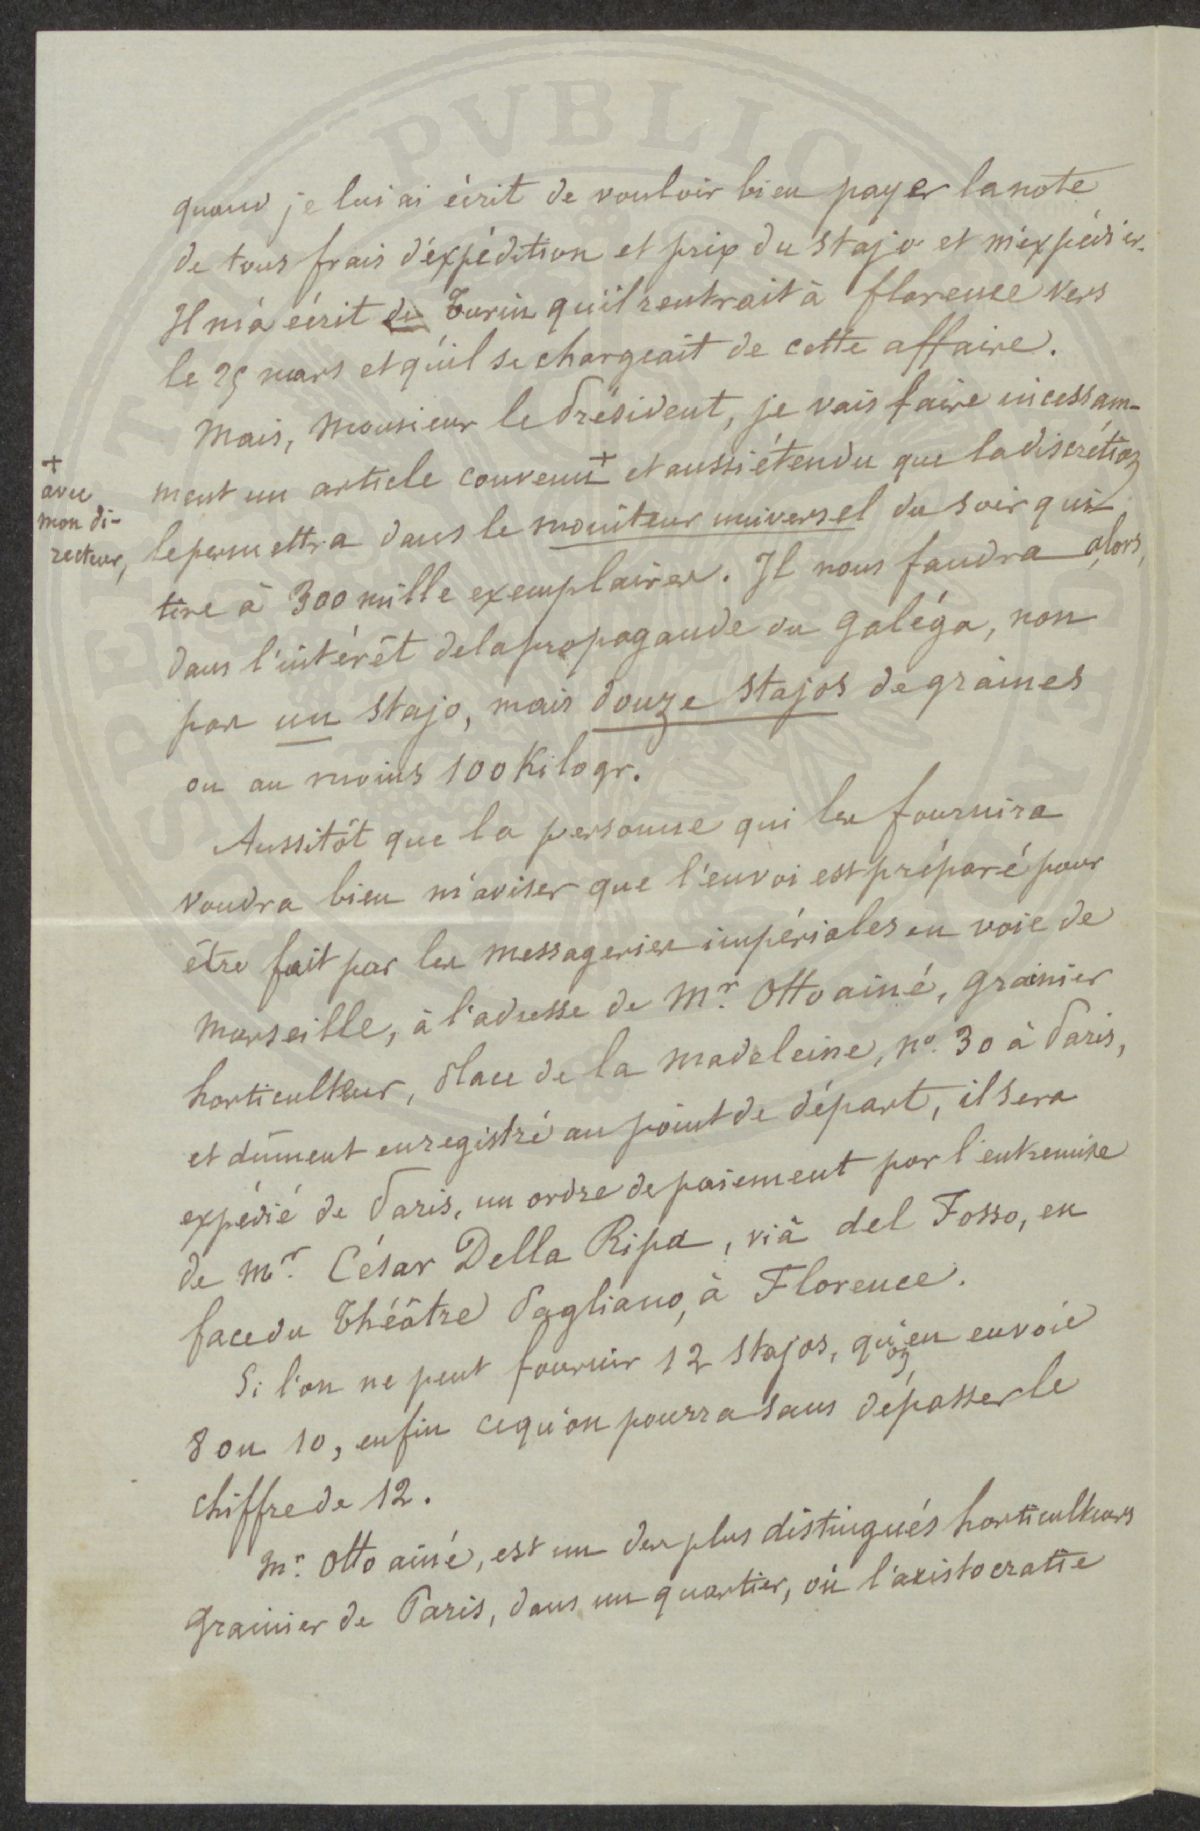 quand je lui ai écrit de vouloir bien payer la note
de tous frais d'éxpédition et prix du stajo et m'expédier.
Il m'a écrit de Turin qu'il rentrait à florence vers
le 25 mars et qu'il se chargeait de cette affaire.
Mais, Monsieur le Président, je vais faire incessam-
ment un article convenu + et aussi étendu que la discrétion
+
avec
mon di-
recteur,
le permettra dans le moniteur universel du soir qui
tire à 300 mille exemplaires. Il nous faudra alors,
dans l'intérêt de la propagande du galéga, non
pas un stajo, mais douze stajos de graines
ou au moins 100 Kilogr.
Aussitôt que la personne qui les fournira
voudra bien m'aviser que l'envoi est préparé pour
être fait par les messageries impériales en voie de
Marseille, à l'adresse de Mr. Otto ainé, grainier
horticulteur, place de la Madeleine, no. 30 à Paris,
et dûment enregistré au point de départ, il sera
expédié de Paris, un ordre de paiement par l'entremise
de Mr. César Della Ripa, viâ del Fosso, en
face du Théâtre Pagliano, à Florence.
Si l'on ne peut fournir 12 stajos, qu'on en envoie
8 ou 10, enfin ce qu'on pourra sans dépasser le
chiffre de 12.
Mr. Otto ainé, est un des plus distingués horticulteurs
Grainier de Paris, dans un quartier, où l'aristocratie